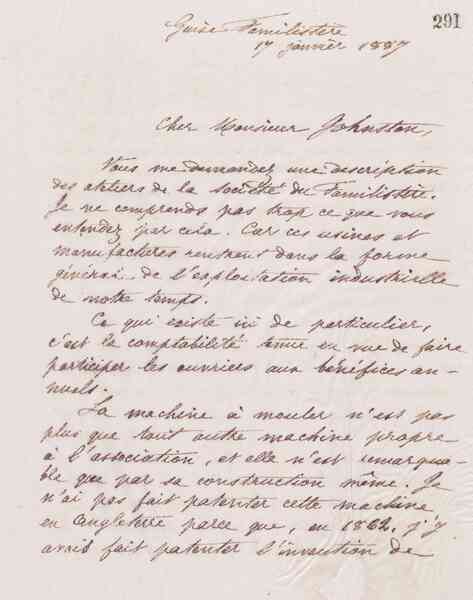 291
Guise Familistère
17 janvier 1887
Cher Monsieur Johnston,
Vous me demandez une description
des ateliers de la société du Familistère.
Je ne comprends pas trop ce que vous
entendez par cela. Car ces usines et
manufactures rentrent dans la forme
général de l'exploitation industrielle
de notre temps.
Ce qui existe ici de particulier,
c'est la comptabilité tenue en vue de faire
participer les ouvriers aux bénéfices an-
nuels.
La machine à mouler n'est pas
plus que tout autre machine propre
à l'association, et elle n'est remarqua-
ble que par sa construction même. Je
n'ai pas fait patenter cette machine
en Angleterre parce que, en 1862, j'y
avais fait patenter l'invention de